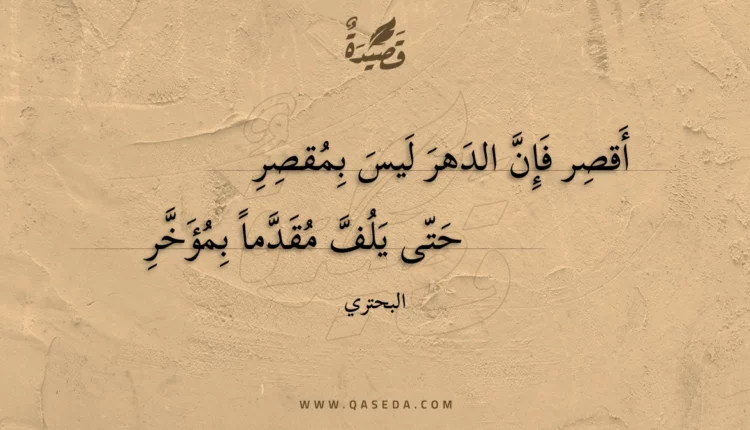 قَصِيدَةٌ
أَقصِر فَإِنَّ الدَهرَ لَيسَ بِمُقصِرِ
حَتّى يَلُفَّ مُقَدَّماً بِمُؤَخَّرِ
البحتري
WWW.QASEDA.COM